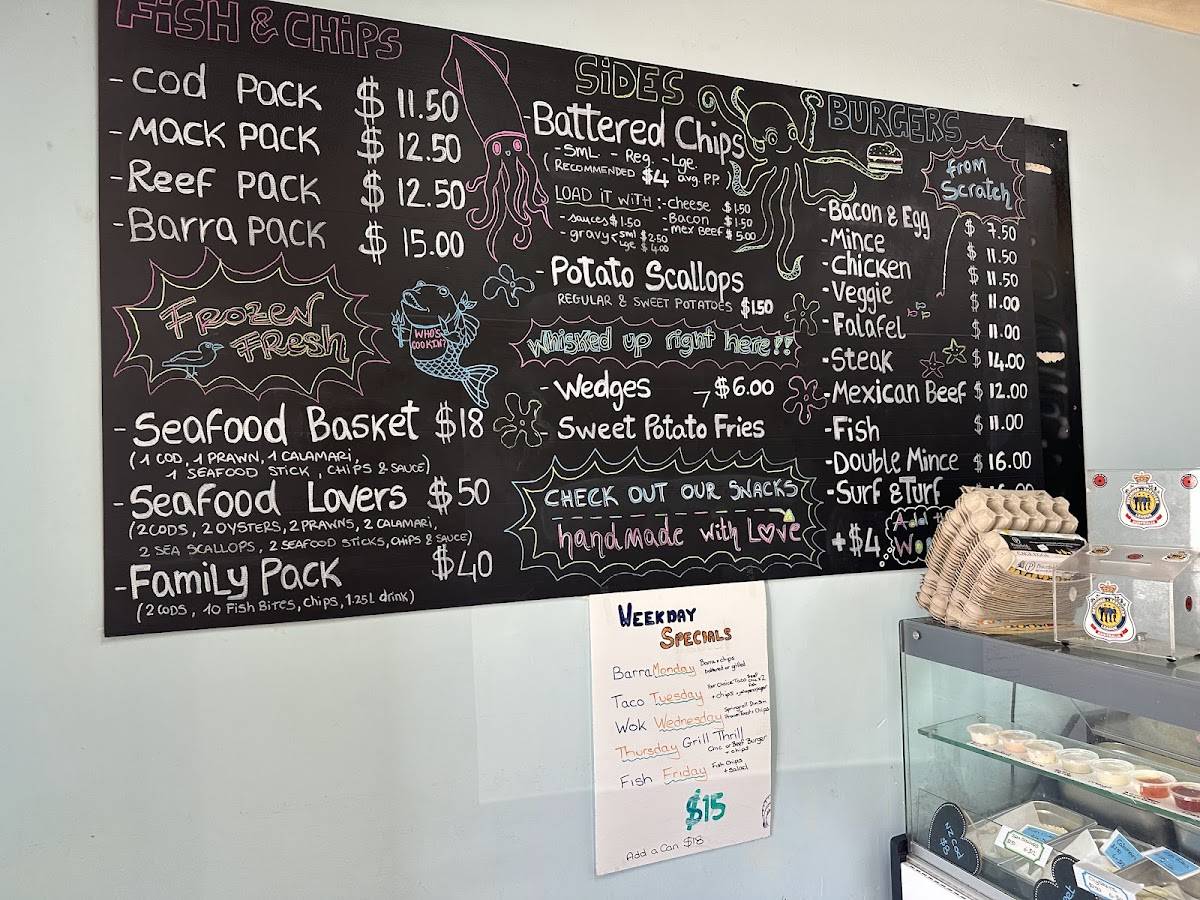 FISH & CHIPS
- COD PACK $11.50
- MACK PACK $12.50
- Reef PACK $12.50
- Barra PACK $15.00
FROZEN
FResh
WHO'S
COOKIN?
- Seafood Basket $18
(1 COD, 1 PRAWN, 1 CALAMARI,
1 SEAFOOD STICK, CHIPS & SAUCE)
- Seafood Lovers $50
(2 CODS, 2 OYSTERS, 2 PRAWNS, 2 CALAMARI,
2 SEA SCALLOPS, 2 SEAFOOD STICKS, CHIPS & SAUCE)
- Family Pack $40
(2 CODS, 10 Fish Bites, Chips, 1.25L drink)
SiDES
- Battered Chips
- SML - Reg. - Lge.
(RECOMMENDED $4 avg. P.P.)
LOAD IT WITH :- cheese $1.50
- sauces $1.50 - Bacon $1.50
- gravy < sml $2.50 - Mex Beef $5.00
lge $4.00
- Potato Scallops
REGULAR & SWEET POTATOES $1.50
whisked up right here!!
- Wedges → $6.00
- Sweet Potato Fries
CHECK OUT OUR SNACKS
handmade with Love
BURGERS
from
Scratch
- Bacon & Egg $7.50
- Mince $11.50
- Chicken $11.50
- Veggie $11.00
- Falafel $11.00
- Steak $14.00
- Mexican Beef $12.00
- Fish $11.00
- Double Mince $16.00
- Surf & Turf
+$4 Add
WEEKDAY
SPECIALS
Barra Monday Barra + chips
battered or grilled
Taco Tuesday
+ chips
Wok Wednesday
Thursday Grill Thrill
Chic or Beef Burger
+ chips
Fish Friday Fish Chips
+ salad
$15
Add a Can $18
AUSTRALIA
AUSTRALIA